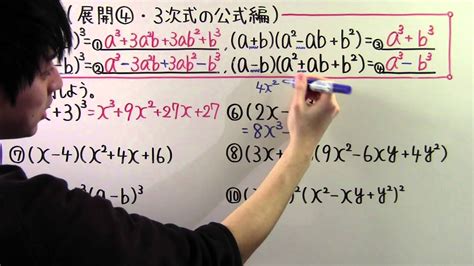 (展開④・3次式の公式編)
b)³=①a³+3a²b+3ab²+b³, (a+b)(a²-ab+b²)=③a³+b³
b)³=②a³-3a²b+3ab²-b³, (a-b)(a²+ab+b²)=④a³-b³
れよう。
4x²
+3)³=x³+9x²+27x+27
⑥(2x-
=8x³-
⑦(x-4)(x²+4x+16)
⑧(3x+ (9x²-6xy+4y²)
³(a-b)³
⑩ )²(x²-xy+y²)²